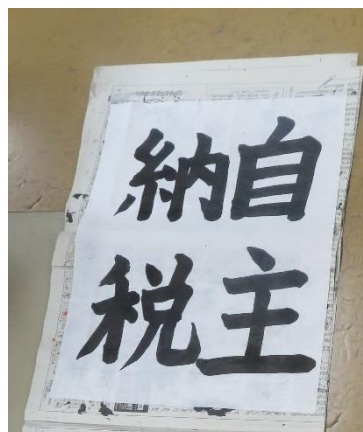 自主
納税